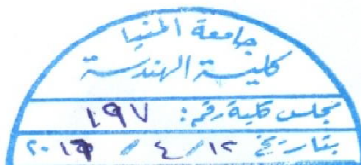 جامعة المنيا
كلية الهندسة
مجلس كلية رقم: ٤٩٧
بتاريخ ١٢ / ٤ / ٢٠١٩